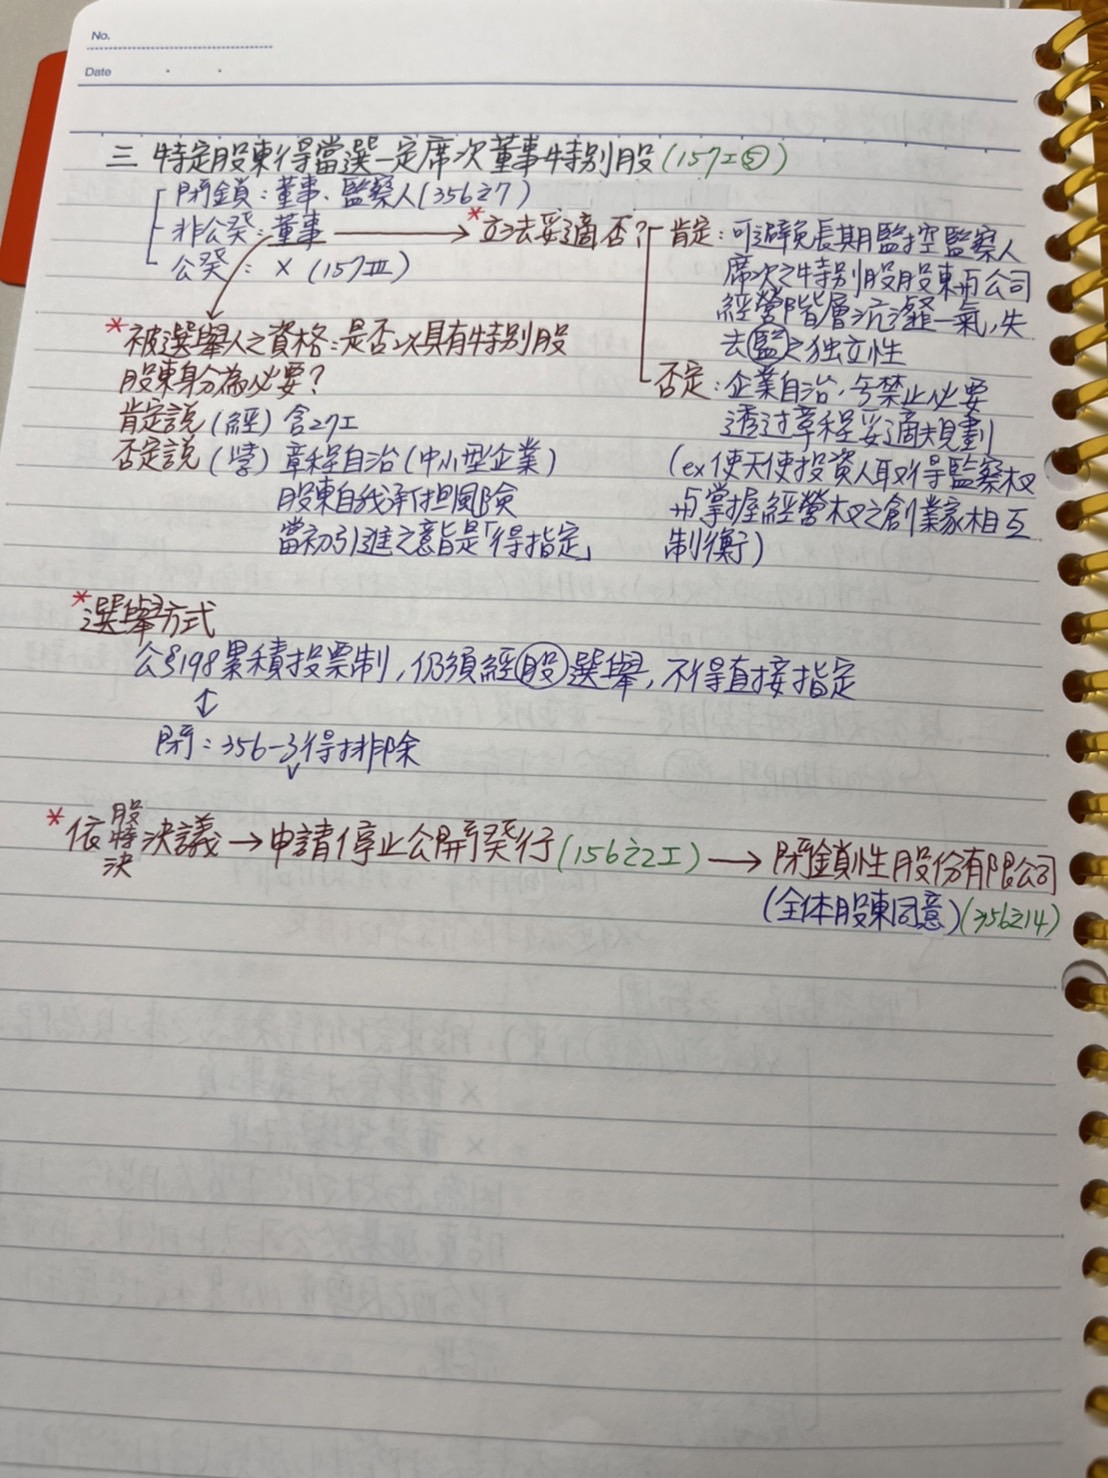 No.
Date
三 特定股東得當選一定席次董事特別股(157I⑤)
閉鎖：董事、監察人(356之7)
非公發：董事
公發：×(157III)
*立法妥適否？
肯定：可避免長期監控監察人
席次之特別股股東與公司
經營階層沆瀣一氣，失
去㊬之独立性
否定：企業自治，号禁止必要
透過章程妥適規劃
(ex使天使投資人取得監察权
与掌握經營权之創業家相互
制衡)
*被選舉人之資格：是否以具有特別股
股東身分為必要？
肯定說(經)含27I
否定說(學)章程自治(中小型企業)
股東自我承担風險
當初引進之意旨是「得指定」
*選舉方式
公§198累積投票制，仍須經股選舉，不得直接指定
↕
閉：356-3得排除
v
*依股特決決議→申請停止公開發行(156之2I)→閉鎖性股份有限公司
(全体股東同意)(356之14)